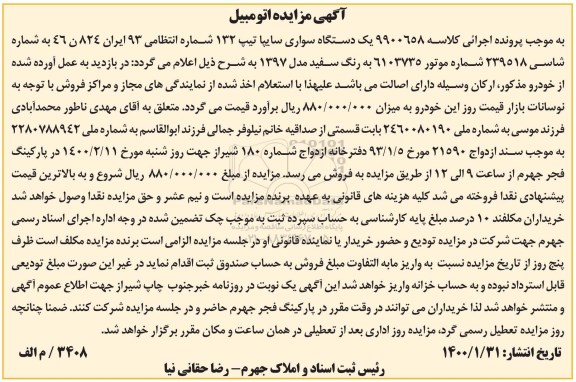 آگهی مزایده اتومبیل
به موجب پرونده اجرائی کلاسه ۹۹۰۰۶۵۸ یک دستگاه سواری سایپا تیپ ۱۳۲ شماره انتظامی ۹۳ ایران ۸۲۴ ن ۴۶ به شماره
شاسی ۲۳۹۵۱۸ شماره موتور ۶۱۰۳۷۳۵ به رنگ سفید مدل ۱۳۹۷ به شرح ذیل اعلام می گردد: در بازدید به عمل آورده شده
از خودرو مذکور، ارکان وسیله دارای اصالت می باشد علیهذا با استعلام اخذ شده از نمایندگی های مجاز و مراکز فروش با توجه به
نوسانات بازار قیمت روز این خودرو به میزان ۸۸۰/۰۰۰/۰۰۰ ریال برآورد قیمت می گردد. متعلق به آقای مهدی ناطور محمدآبادی
فرزند موسی به شماره ملی ۲۴۶۰۰۸۰۱۹۰ بابت قسمتی از صداقیه خانم نیلوفر جمالی فرزند ابوالقاسم به شماره ملی ۲۲۸۰۷۸۸۹۴۲
به موجب سند ازدواج ۲۱۵۹۰ مورخ ۹۳/۱/۵ دفترخانه ازدواج شماره ۱۸۰ شیراز جهت روز شنبه مورخ ۱۴۰۰/۲/۱۱ در پارکینگ
فجر جهرم از ساعت ۹ الی ۱۲ از طریق مزایده به فروش می رسد. مزایده از مبلغ ۸۸۰/۰۰۰/۰۰۰ ریال شروع و به بالاترین قیمت
پیشنهادی نقدا فروخته می شد کلیه هزینه های قانونی به عهده برنده مزایده است و نیم عشر و حق مزایده نقدا وصول خواهد شد
خریداران مکلفند ۱۰ درصد مبلغ پایه کارشناسی به حساب سپرده ثبت به موجب چک تضمین شده در وجه اداره اجرای اسناد رسمی
جهرم جهت شرکت در مزایده تودیع و حضور خریدار یا نماینده قانونی او در جلسه مزایده الزامی است برنده مزایده مکلف است ظرف
پنج روز از تاریخ مزایده نسبت به واریز مابه التفاوت مبلغ فروش به حساب صندوق ثبت اقدام نماید در غیر این صورت مبلغ تودیعی
قابل استرداد نبوده و به حساب خزانه واریز خواهد شد این آگهی یک نوبت در روزنامه خبرجنوب چاپ شیراز جهت اطلاع عموم آگهی
و منتشر خواهد شد لذا خریداران می توانند در وقت مقرر در پارکینگ فجر جهرم حاضر و در جلسه مزایده شرکت کنند. ضمنا چنانچه
روز مزایده تعطیل رسمی گرد، مزایده روز اداری بعد از تعطیلی در همان ساعت و مکان مقرر برگزار خواهد شد.
تاریخ انتشار: ۱۴۰۰/۱/۳۱
۳۴۰۸ / م الف
رئیس ثبت اسناد و املاک جهرم– رضا حقانی نیا